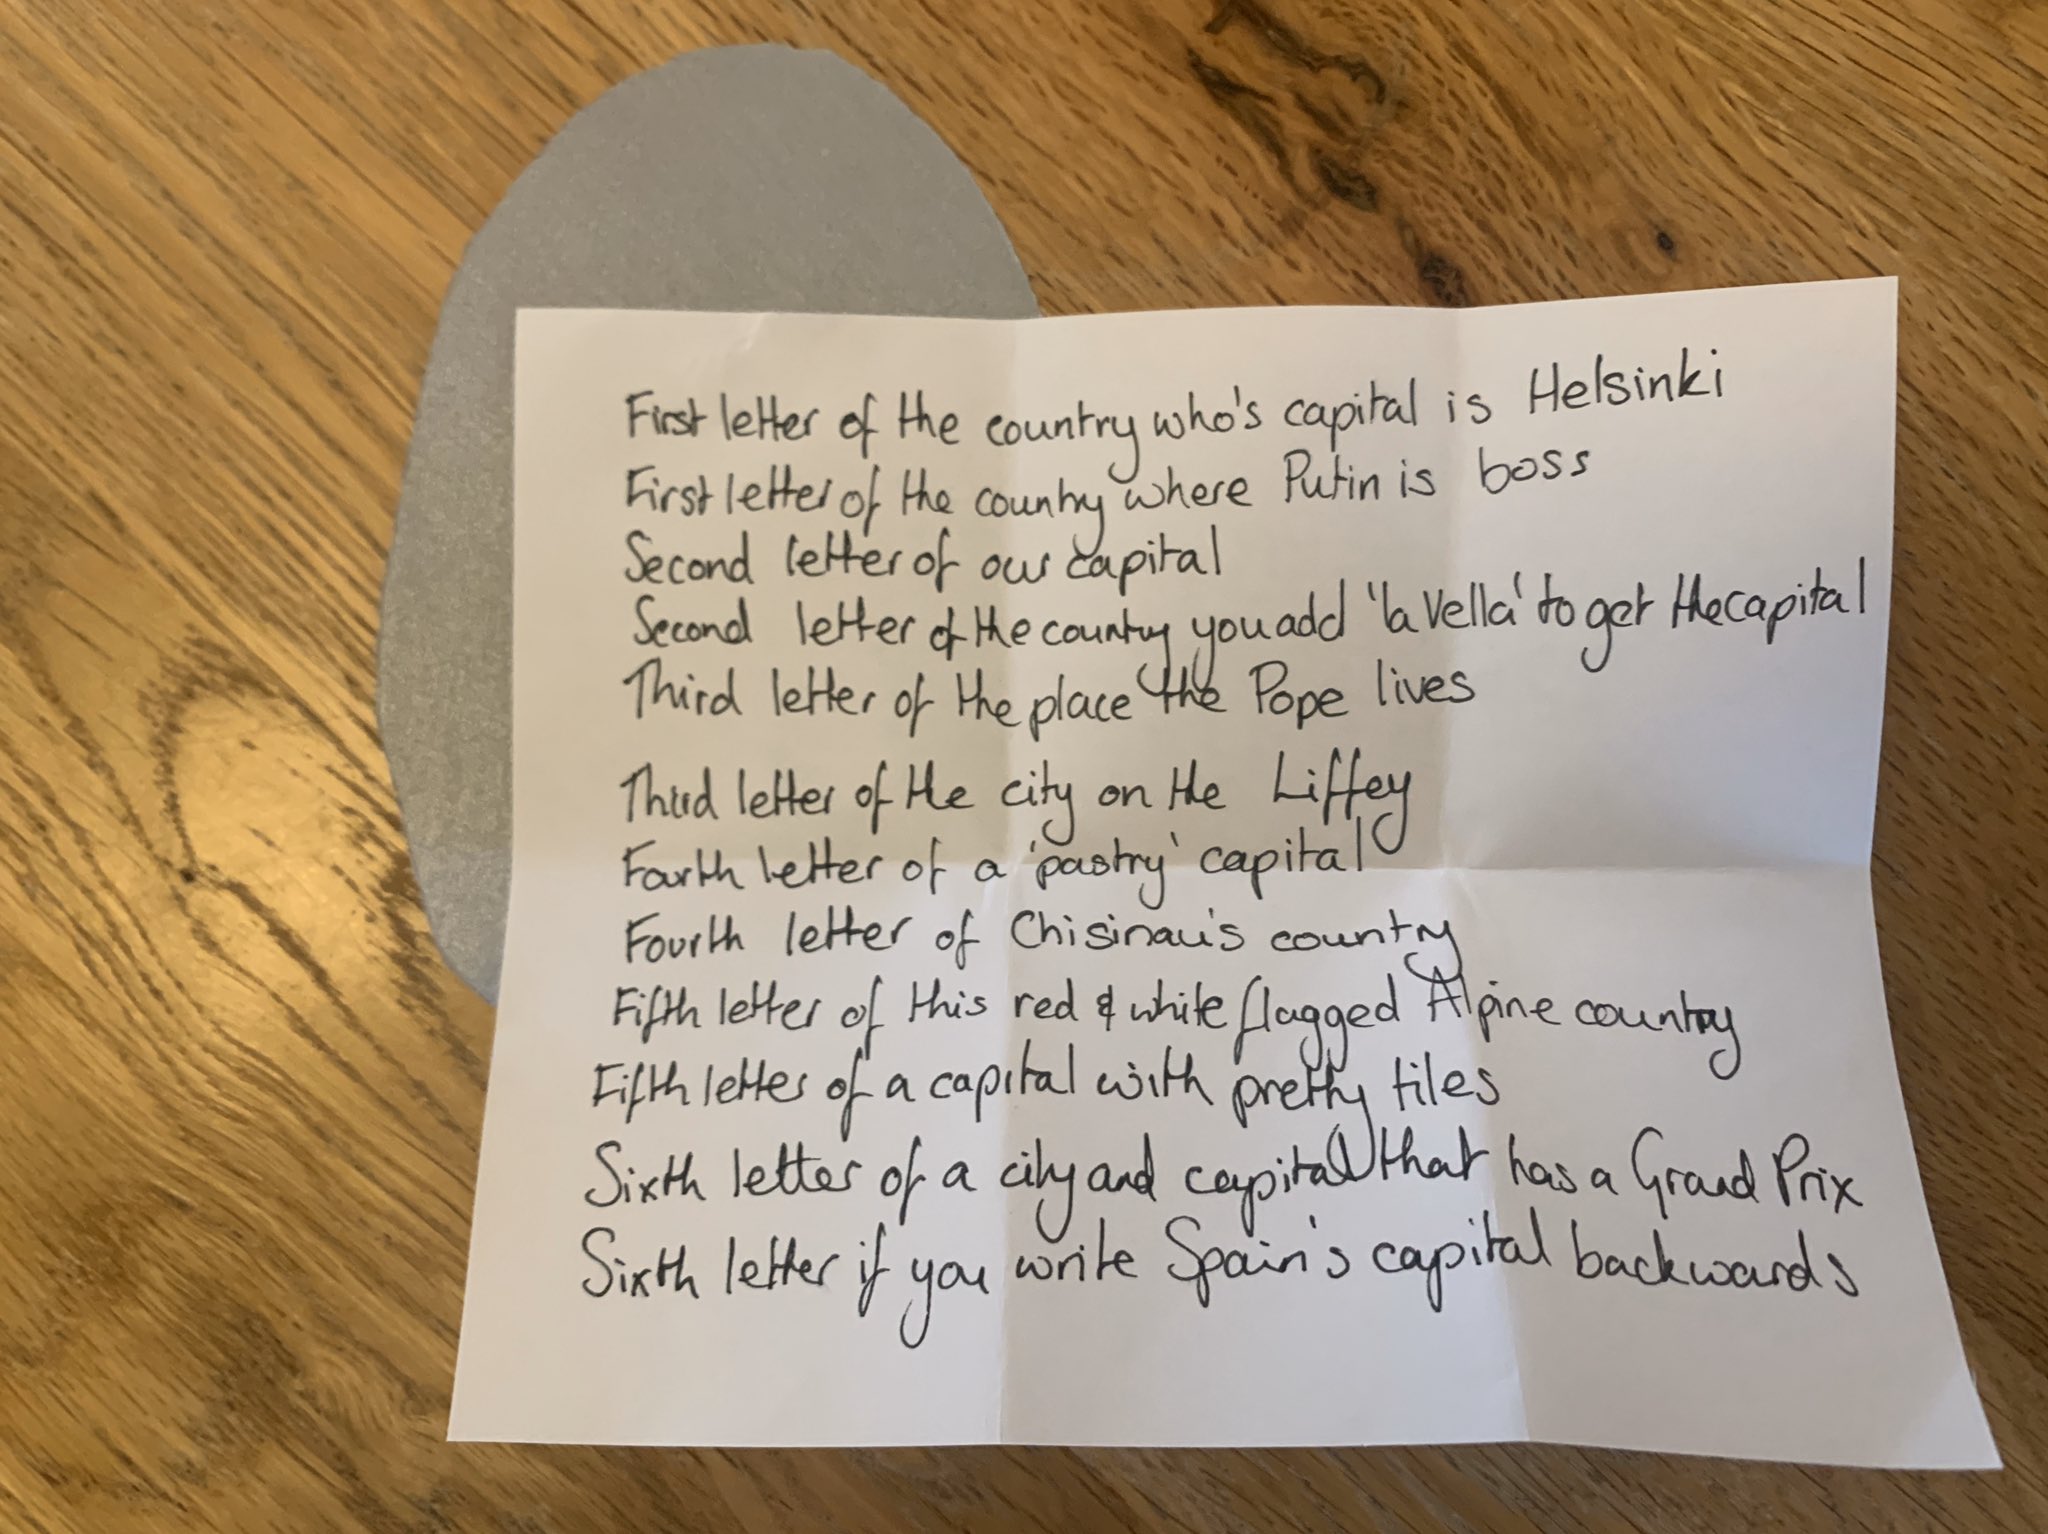 First letter of the country who's capital is Helsinki
First letter of the country where Putin is boss
Second letter of our capital
Second letter of the country you add 'la Vella' to get the capital
Third letter of the place the Pope lives
Third letter of the city on the Liffey
Fourth letter of a 'pastry' capital
Fourth letter of Chisinau's country
Fifth letter of this red & white flagged Alpine country
Fifth letter of a capital with pretty tiles
Sixth letter of a city and capital that has a Grand Prix
Sixth letter if you write Spain's capital backwards